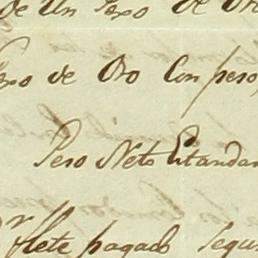 De Un Texo de Oro
Texo de Oro Con peso
Peso Neto Estandar
flete pagado Segun